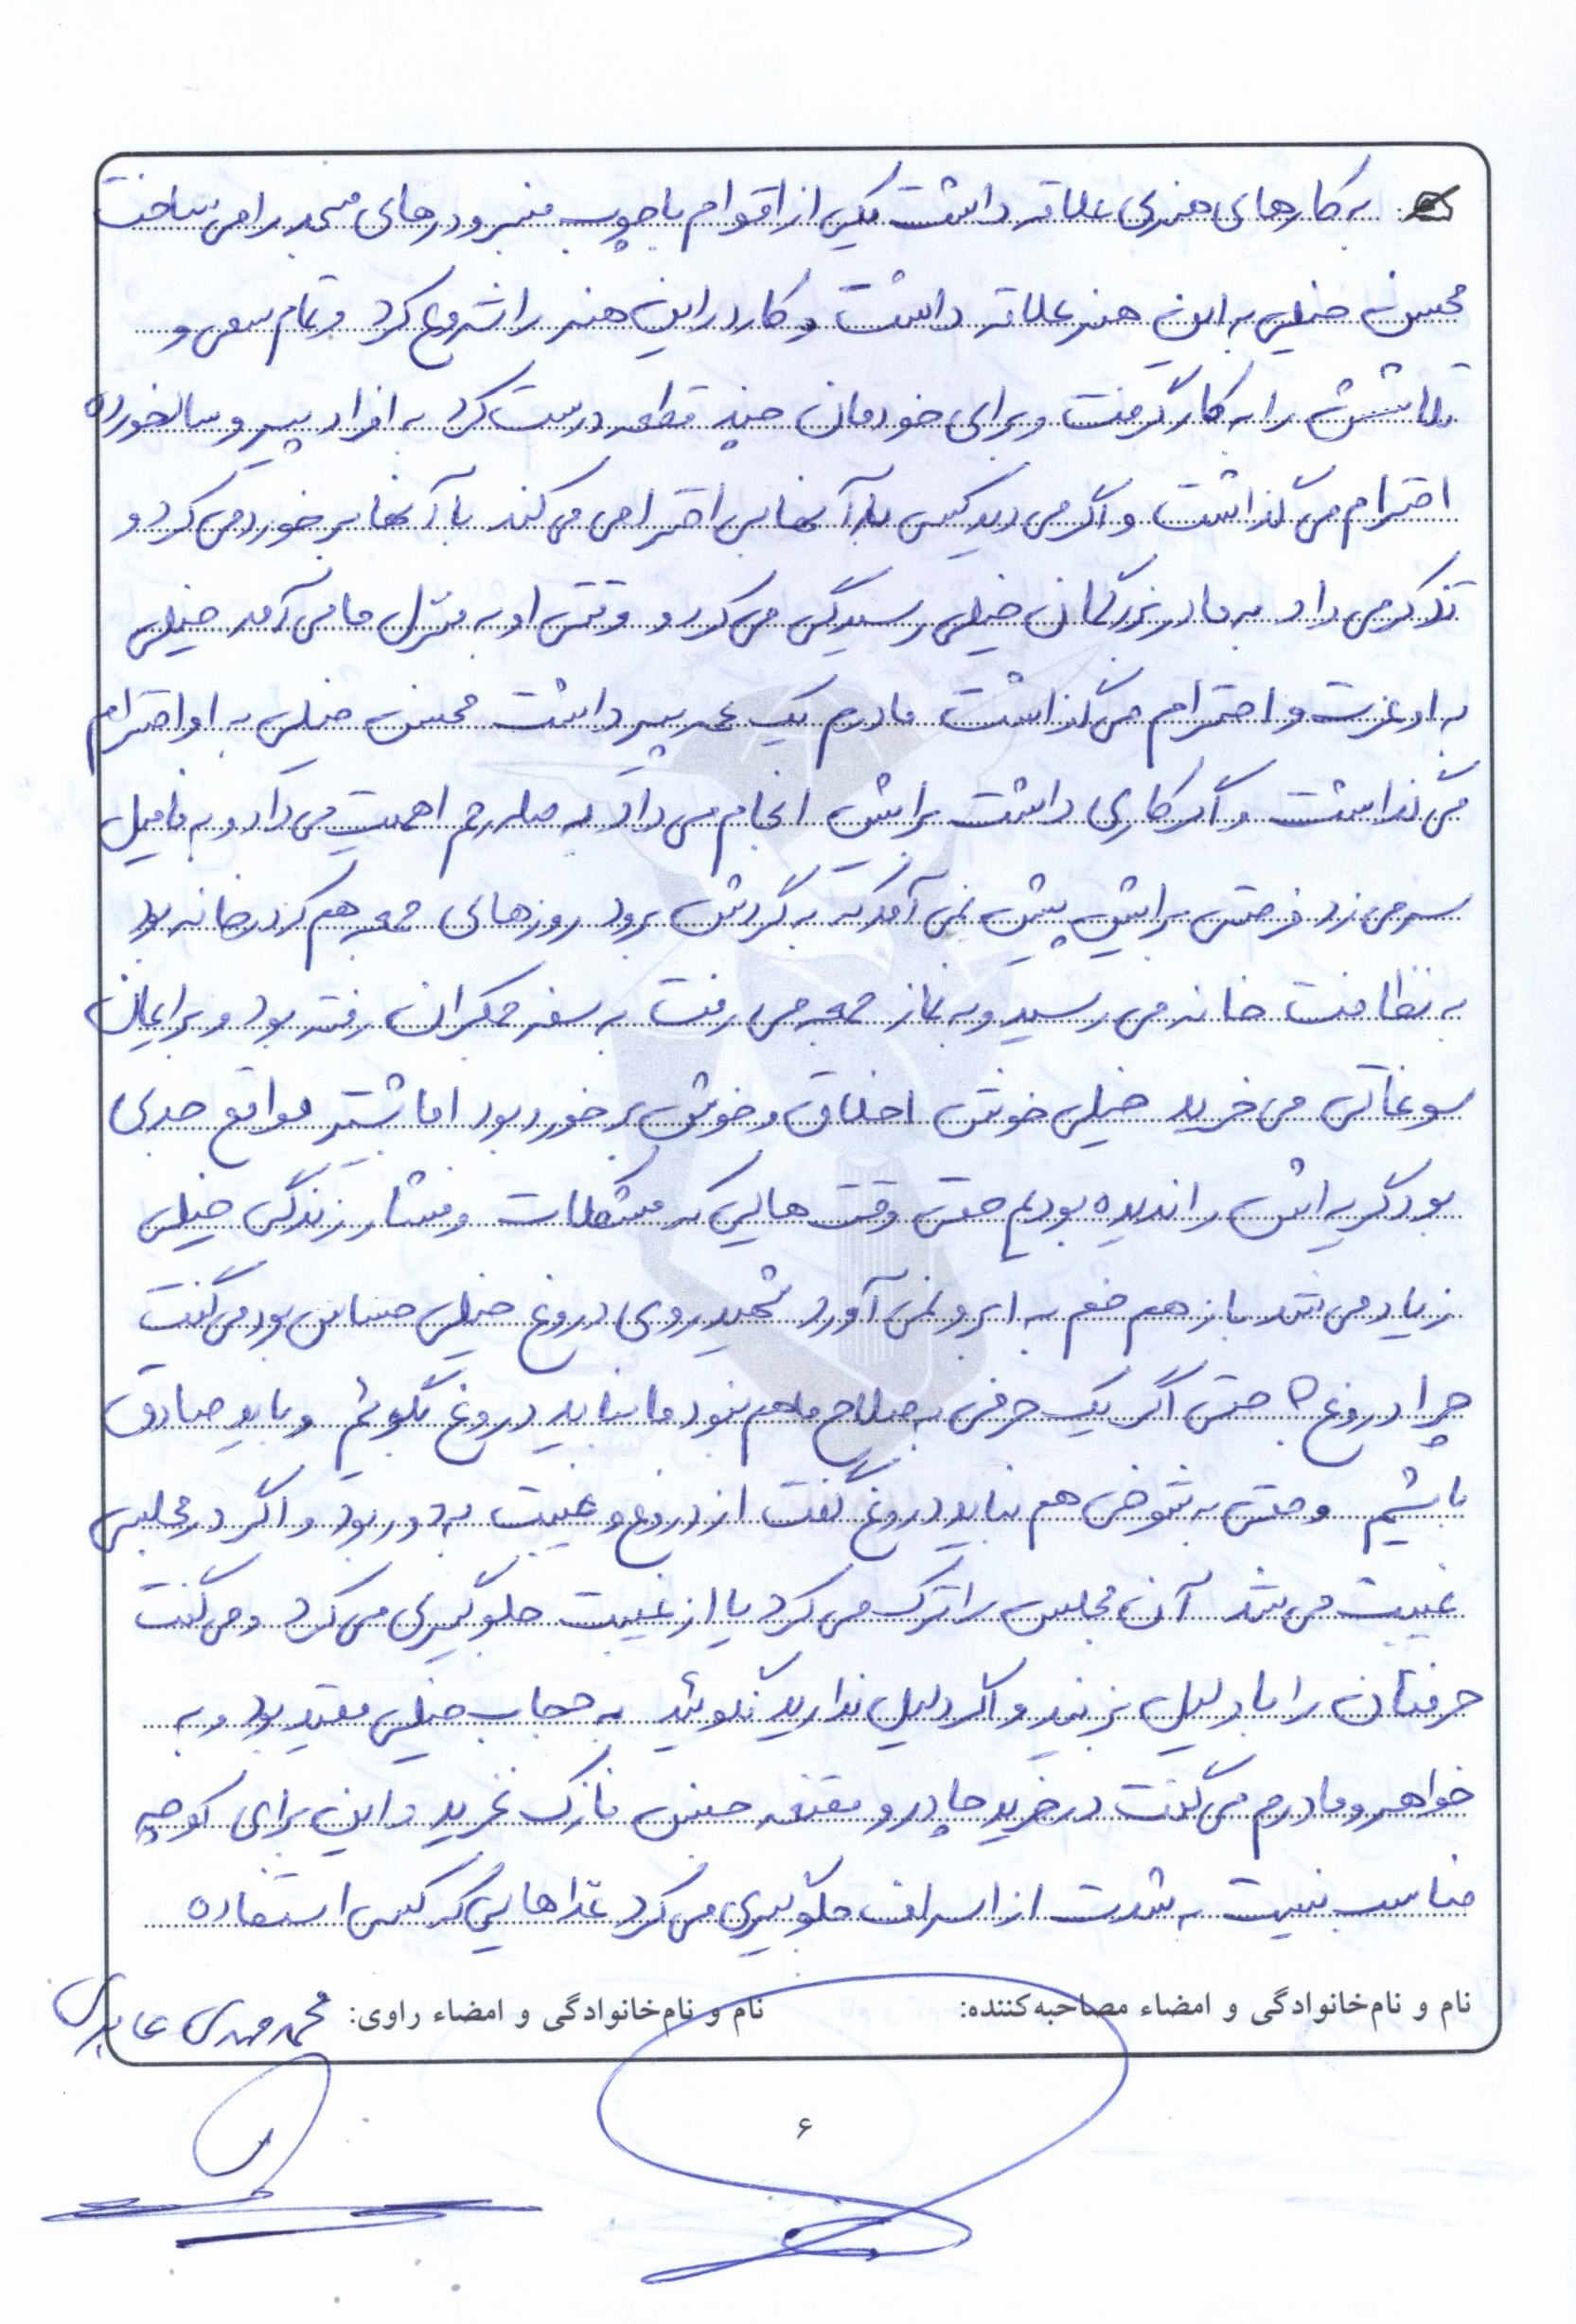 به کارهای هنری علاقه داشت یکی از اقوام با چوب منبر و درهای مسجد را می ساخت
محسن خیلی به این هنر علاقه داشت و کار در این هنر را شروع کرد و تمام سعی و
تلاشش را به کار گرفت و برای خودمان چند قطعه درست کرد به افراد پیر و سالخورده
احترام می گذاشت و اگر می دید کسی به آنها بی احترامی می کند با آنها برخورد می کرد و
تذکر می داد به مادربزرگمان خیلی رسیدگی می کرد و وقتی او به منزل ما می آمد خیلی
به او عزت و احترام می گذاشت مادرم یک عمه پیر داشت محسن خیلی به او احترام
می گذاشت و اگر کاری داشت برایش انجام می داد به صله رحم اهمیت می داد و به فامیل
سر می زد فرصتی برایش پیش نمی آمد که به گردش برود روزهای جمعه هم که در خانه بود
به نظافت خانه می رسید و به نماز جمعه می رفت به سفر جمکران رفته بود و برایمان
سوغاتی می خرید خیلی خوش اخلاق و خوش برخورد بود اما بیشتر مواقع جدی
بود گریه اش را ندیده بودیم حتی وقت هایی که مشکلات و فشار زندگی خیلی
زیاد می شد باز هم خم به ابرو نمی آورد شهید روی دروغ خیلی حساس بود می گفت
چرا دروغ؟ حتی اگر یک حرفی به صلاح ما هم نبود ما نباید دروغ بگوئیم و باید صادق
باشیم و حتی به شوخی هم نباید دروغ گفت از دروغ و غیبت به دور بود و اگر در مجلسی
غیبت می شد آن مجلس را ترک می کرد یا از غیبت جلوگیری می کرد و می گفت
حرفتان را با دلیل بزنید و اگر دلیل ندارید نگوئید به حجاب خیلی مقید بود و به
خواهر و مادرم می گفت در خرید چادر و مقنعه جنس نازک نخرید و این برای کوچه
مناسب نیست به شدت از اسراف جلوگیری می کرد غذاهایی که کسی استفاده
نام و نام‌خانوادگی و امضاء مصاحبه‌کننده: نام و نام‌خانوادگی و امضاء راوی: محمدمهدی عابدی
۶